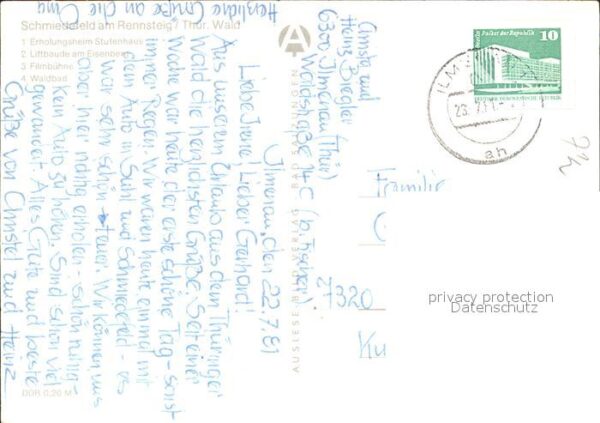 Schmiedefeld am Rennsteig / Thür. Wald
1 Erholungsheim Stutenhaus
2 Liftbaude am Eisenberg
3 Filmbühne
4 Waldbad
Herzliche Grüße an die Oma
Ilmenau, den 22.7.81
Liebe Irene, Lieber Gerhard!
Aus unserem Urlaub aus dem Thüringer
Wald die herzlichsten Grüße. Seit einer
Woche war heute der erste schöne Tag - sonst
immer Regen. Wir waren heute einmal mit
dem Auto in Suhl und Schmiedefeld - es
war sehr schön - teuer. Wir können uns
aber hier richtig erholen - schön ruhig -
kein Auto zu hören. Sind schon viel
gewandert. Alles Gute und beste
Grüße von Christel und Heinz
DDR 0,20 M
AUSLESE-BILD-VERLAG BAD SALZUNGEN
Christel und
Heinz
6300 Ilmenau (Thür)
14 C (b. Fischer)
Palast der Republik
10
DEUTSCHE DEMOKRATISCHE REPUBLIK
ILMENAU
Familie
7320
privacy protection
Datenschutz